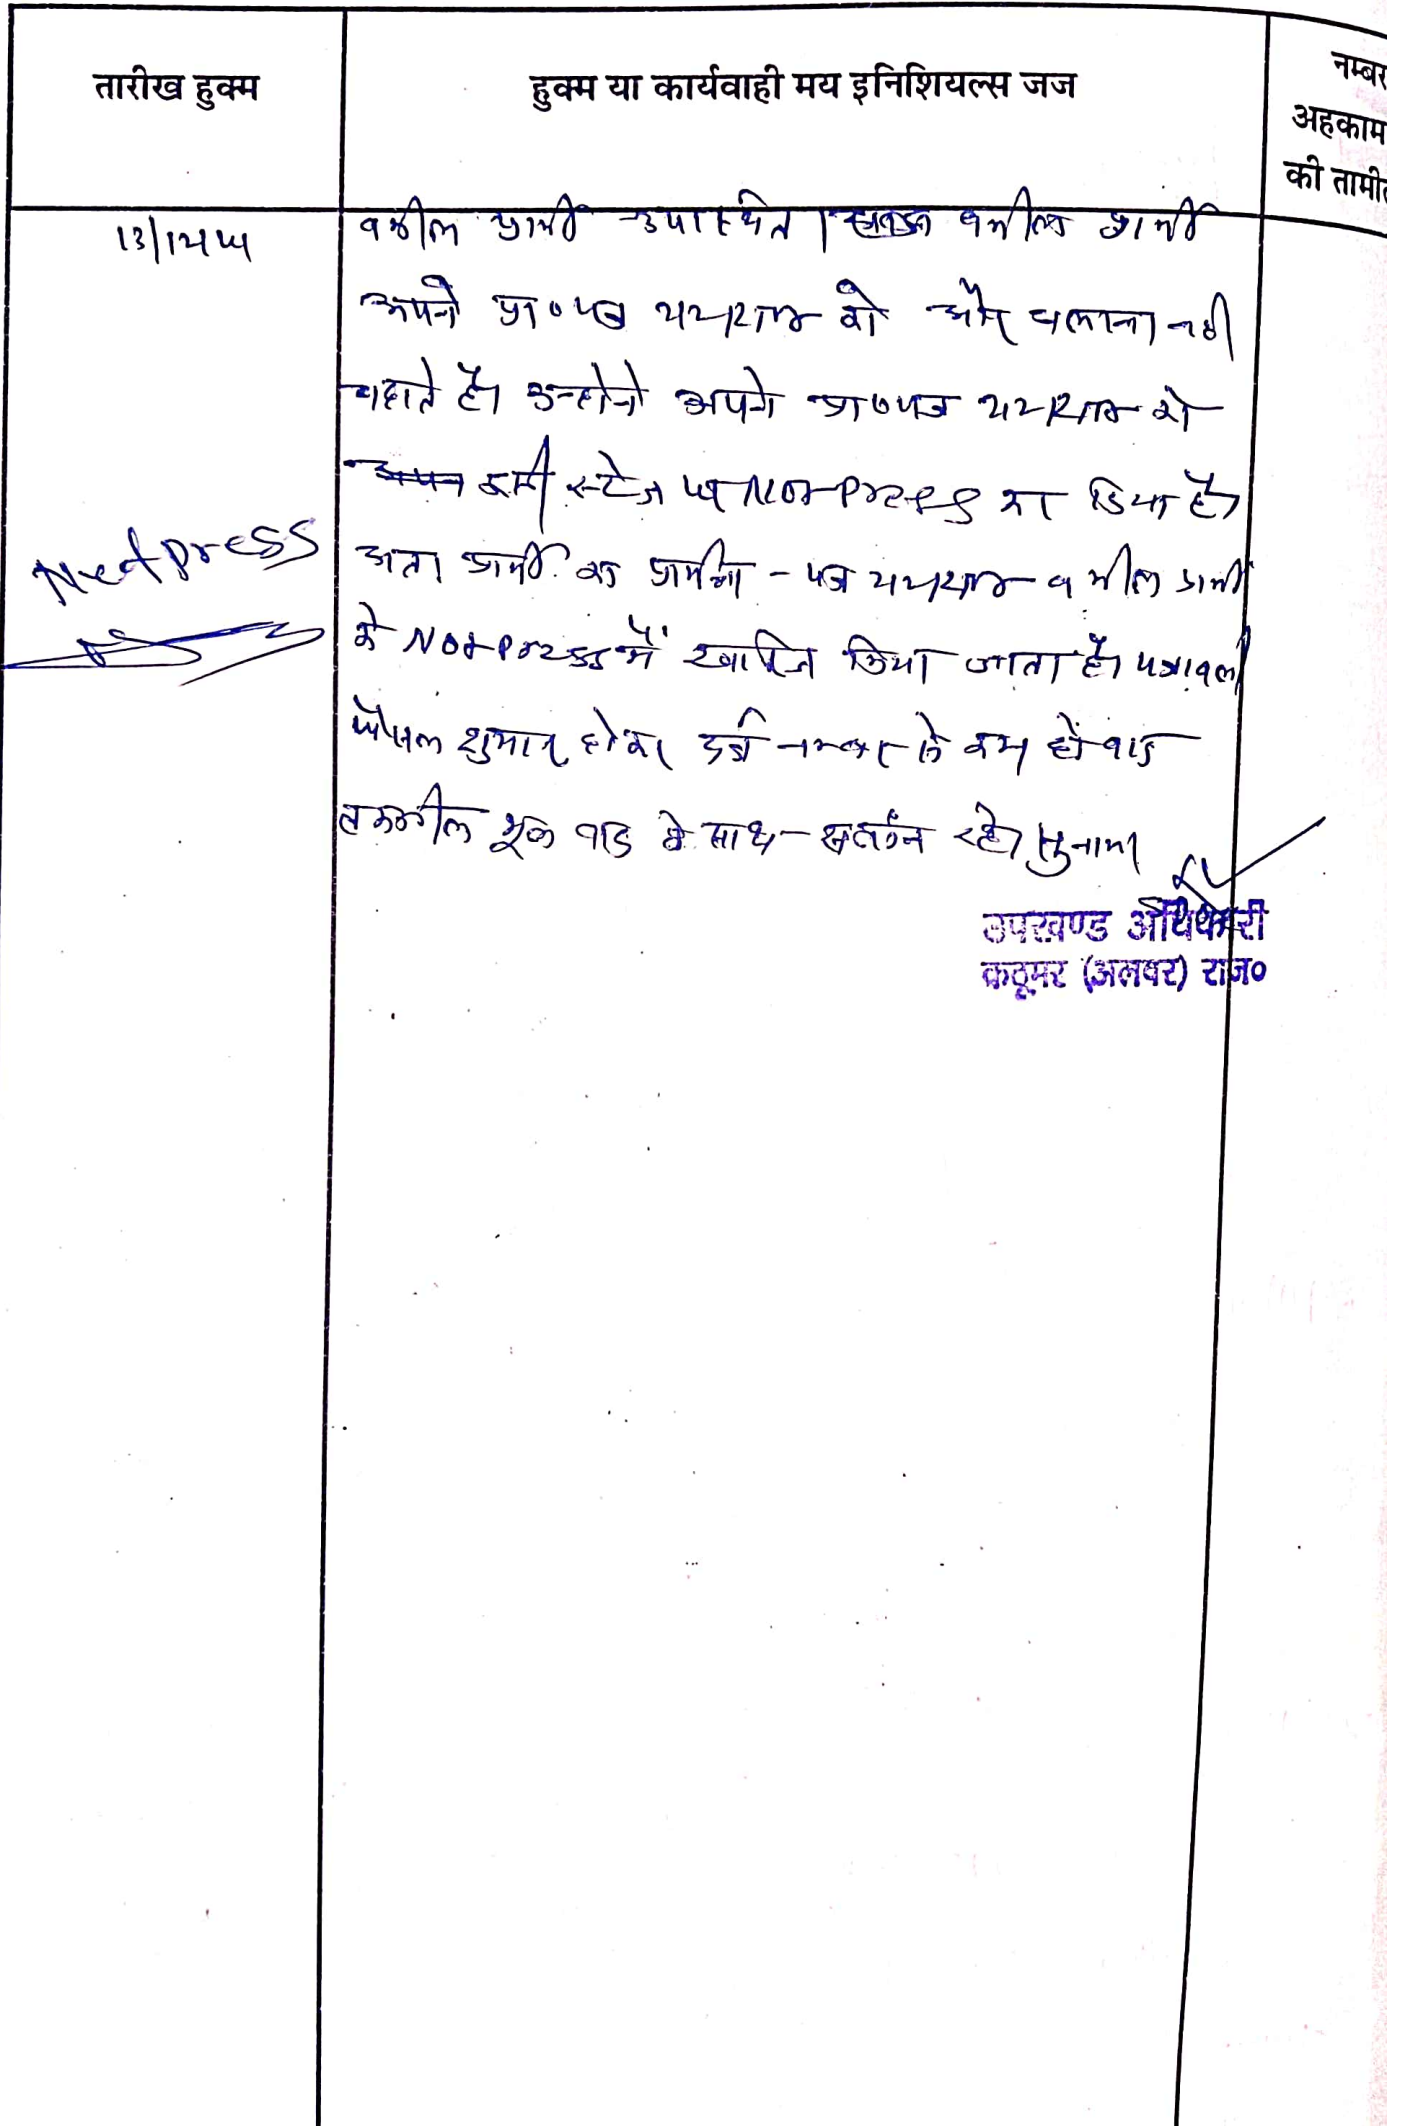 तारीख हुक्म
हुक्म या कार्यवाही मय इनिशियल्स जज
नम्बर
अहकाम
की तामी
वकील प्रार्थी उपस्थित। वकील प्रार्थी
अपने प्रा०पत्र को और चलाना नही
चहाते है। उन्होने अपने प्रा०पत्र को
इसी स्टेज पर Not press कर दिया है।
अतः प्रार्थी का प्रार्थना-पत्र वकील प्रार्थी
के Not press में खारिज किया जाता है। पत्रावली
फैसल शुमार होकर दर्ज नम्बर से कम हो बाद
तकमील मूल वाद के साथ संलग्न रहे।
Not press
उपखण्ड अधिकारी
कठूमर (अलवर) राज०